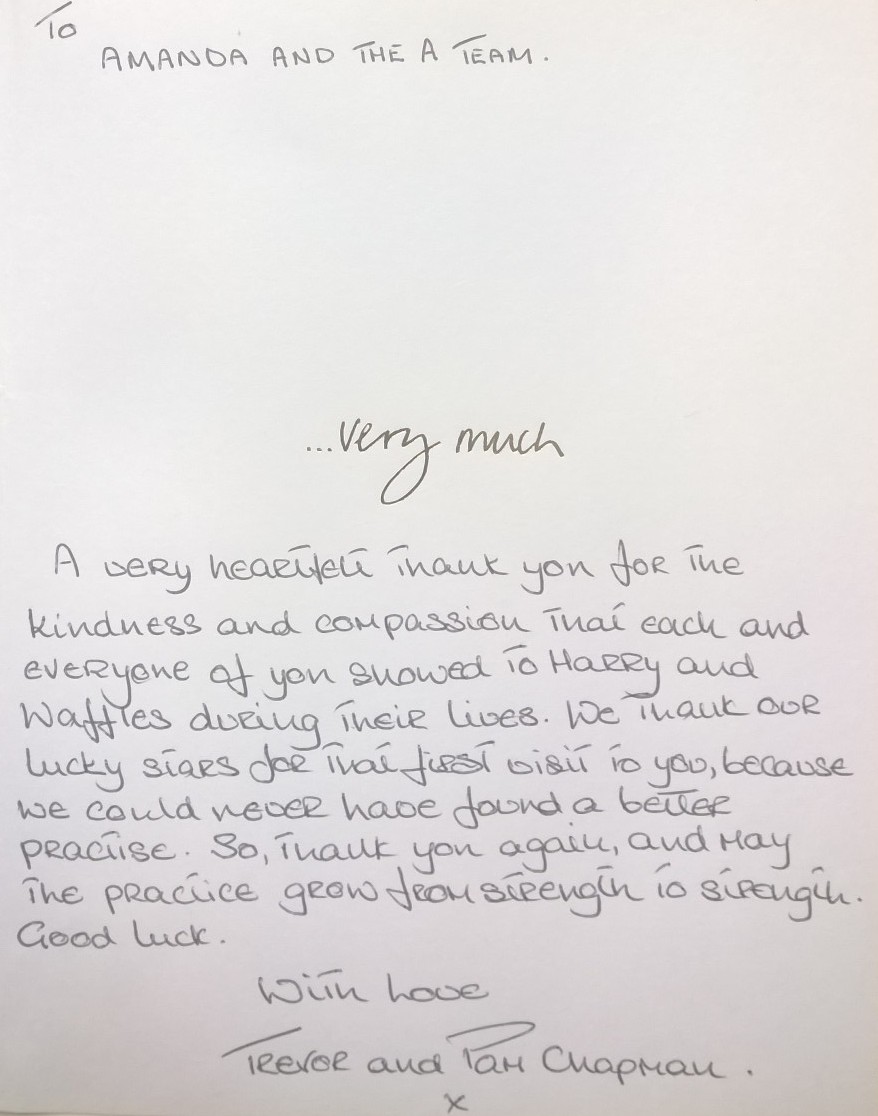 To
AMANDA AND THE A TEAM.
...very much
A very heartfelt thank you for the
kindness and compassion that each and
everyone of you showed to Harry and
Waffles during their lives. We thank our
lucky stars for that first visit to you, because
we could never have found a better
practise. So, thank you again, and may
the practice grow from strength to strength.
Good luck.
With love
Trevor and Pam Chapman.
x